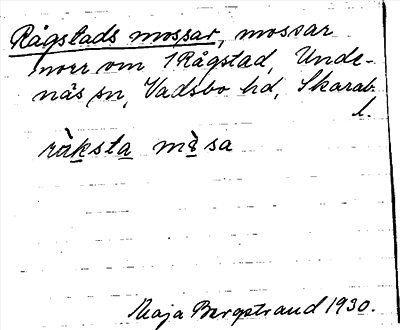 Rågstads mossar, mossar
norr om 1 Rågstad, Unde-
näs sn, Vadsbo hd, Skarab.
l.
ràksta mòsa
Maja Bergstrand 1930.